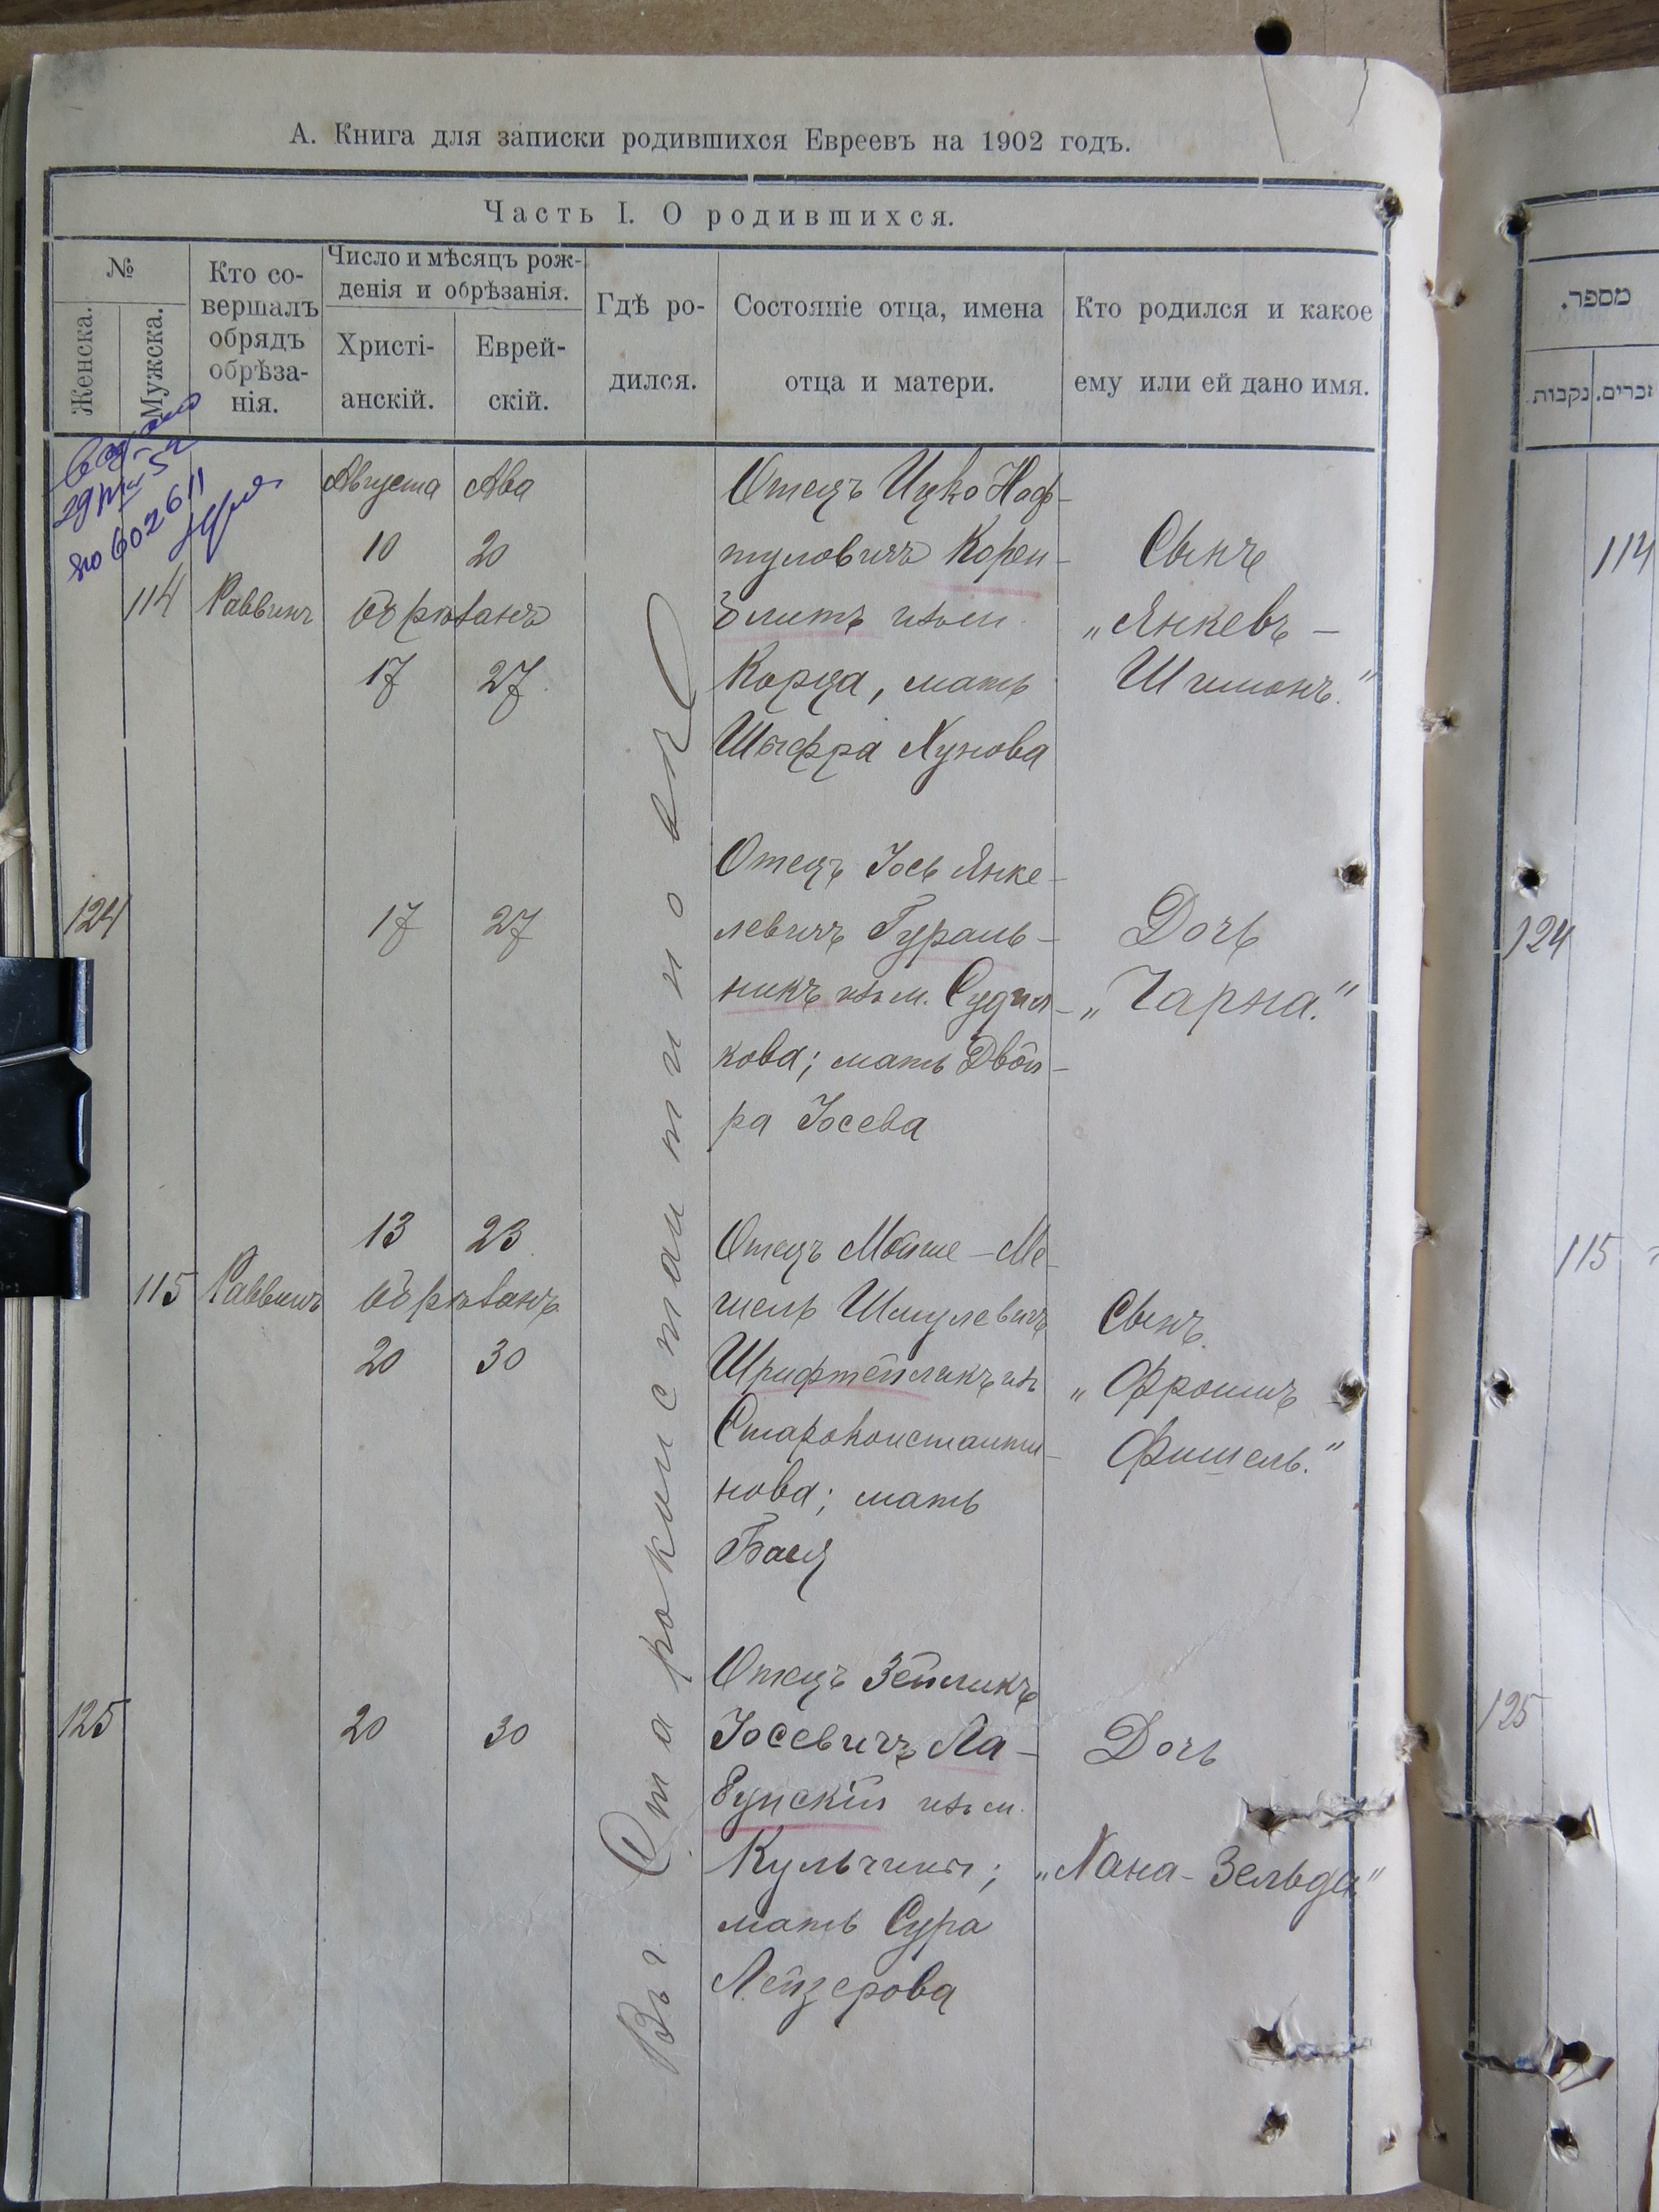 А. Книга для записки родившихся Евреевъ на 1902 годъ.
Часть I. О родившихся.
№
Женска.
Мужска.
Кто со-
вершалъ
обрядъ
обрѣза-
нія.
Число и мѣсяцъ рож-
денія и обрѣзанія.
Христі-
анскій.
Еврей-
скій.
Гдѣ ро-
дился.
Состояніе отца, имена
отца и матери.
Кто родился и какое
ему или ей дано имя.
602611
Въ г. Староконстантиновѣ
114 Раввинъ
Августа Ава
10 20
обрѣзанъ
17 27
Отецъ Ицко Наф-
туловичъ Корен-
блитъ изъ м.
Корца, мать
Шифра Хунова
Сынъ
„Янкевъ –
Шимонъ."
124
17 27
Отецъ Іось Янке-
левичъ Гураль-
никъ изъ м. Судил-
кова; мать Двой-
ра Іосева
Дочь
„Чарна."
115 Раввинъ
13 23
обрѣзанъ
20 30
Отецъ Мойше-Ме-
шель Шмулевичъ
Шрифтейликъ изъ
Староконстанти-
нова; мать
Бася
Сынъ
„Фроимъ –
Фишель."
125
20 30
Отецъ Зейликъ
Іосевичъ Ла-
бунскій изъ м.
Кульчины;
мать Сура
Лейзерова
Дочь
„Хана-Зельда"
מספר.
זכרים.
נקבות
114
124
115
125